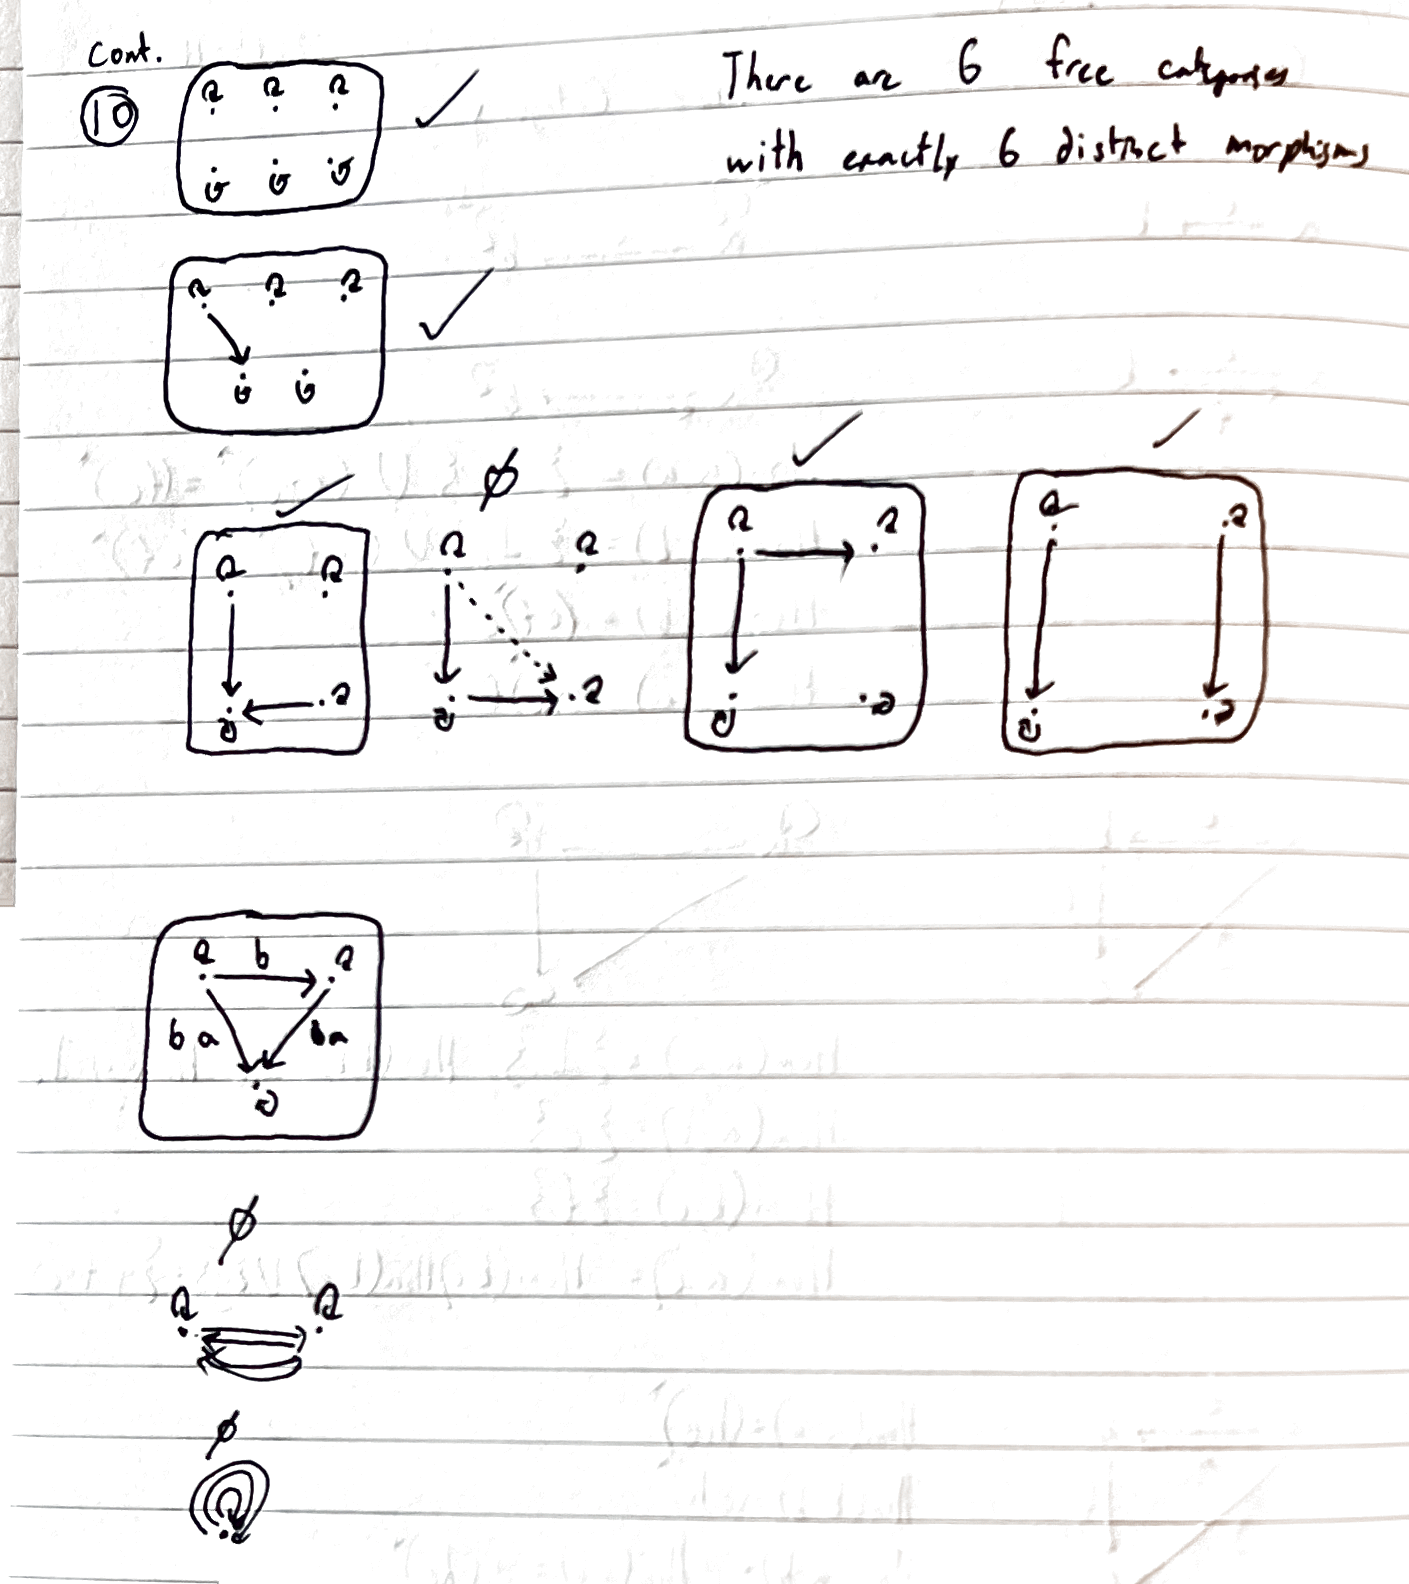 Cont.
10
There are 6 free categories
with exactly 6 distinct morphisms
∅
b
b a
b a
∅
∅